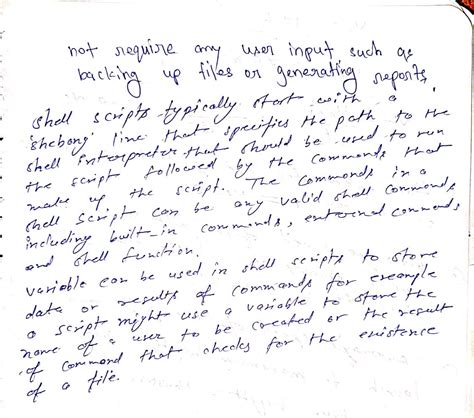 not require any user input such as
backing up files or generating reports.
Shell scripts typically start with a
'shebang' line that specifies the path to the
shell interpreter that should be used to run
the script followed by the commands that
make up the script. The commands in a
shell script can be any valid shell commands
including built-in commands, external commands
and shell function.
variable can be used in shell scripts to store
data or results of commands for example
a script might use a variable to store the
name of a user to be created or the result
of command that checks for the existence
of a file.